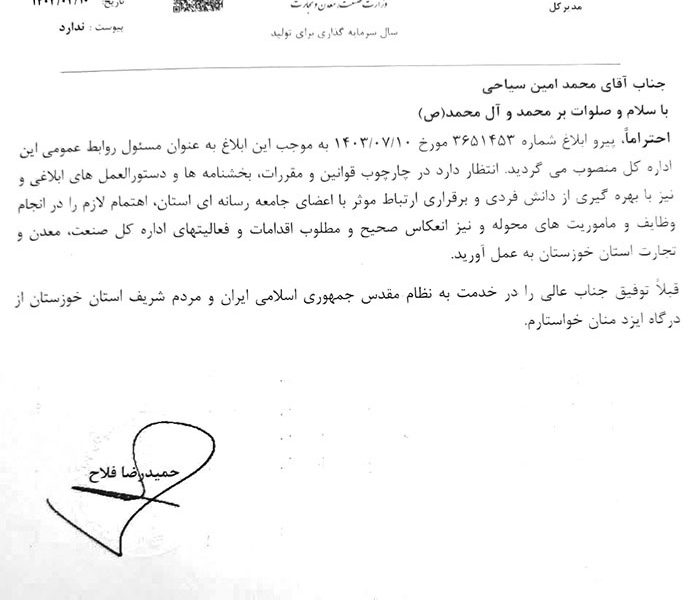 مدیرکل
وزارت صنعت، معدن و تجارت
تاریخ:
سال سرمایه گذاری برای تولید
پیوست: ندارد
جناب آقای محمد امین سیاحی
با سلام و صلوات بر محمد و آل محمد(ص)
احتراماً، پیرو ابلاغ شماره ۳۶۵۱۴۵۳ مورخ ۱۴۰۳/۰۷/۱۰ به موجب این ابلاغ به عنوان مسئول روابط عمومی این
اداره کل منصوب می گردید. انتظار دارد در چارچوب قوانین و مقررات، بخشنامه ها و دستورالعمل های ابلاغی و
نیز با بهره گیری از دانش فردی و برقراری ارتباط موثر با اعضای جامعه رسانه ای استان، اهتمام لازم را در انجام
وظایف و ماموریت های محوله و نیز انعکاس صحیح و مطلوب اقدامات و فعالیتهای اداره کل صنعت، معدن و
تجارت استان خوزستان به عمل آورید.
قبلاً توفیق جناب عالی را در خدمت به نظام مقدس جمهوری اسلامی ایران و مردم شریف استان خوزستان از
درگاه ایزد منان خواستارم.
حمیدرضا فلاح